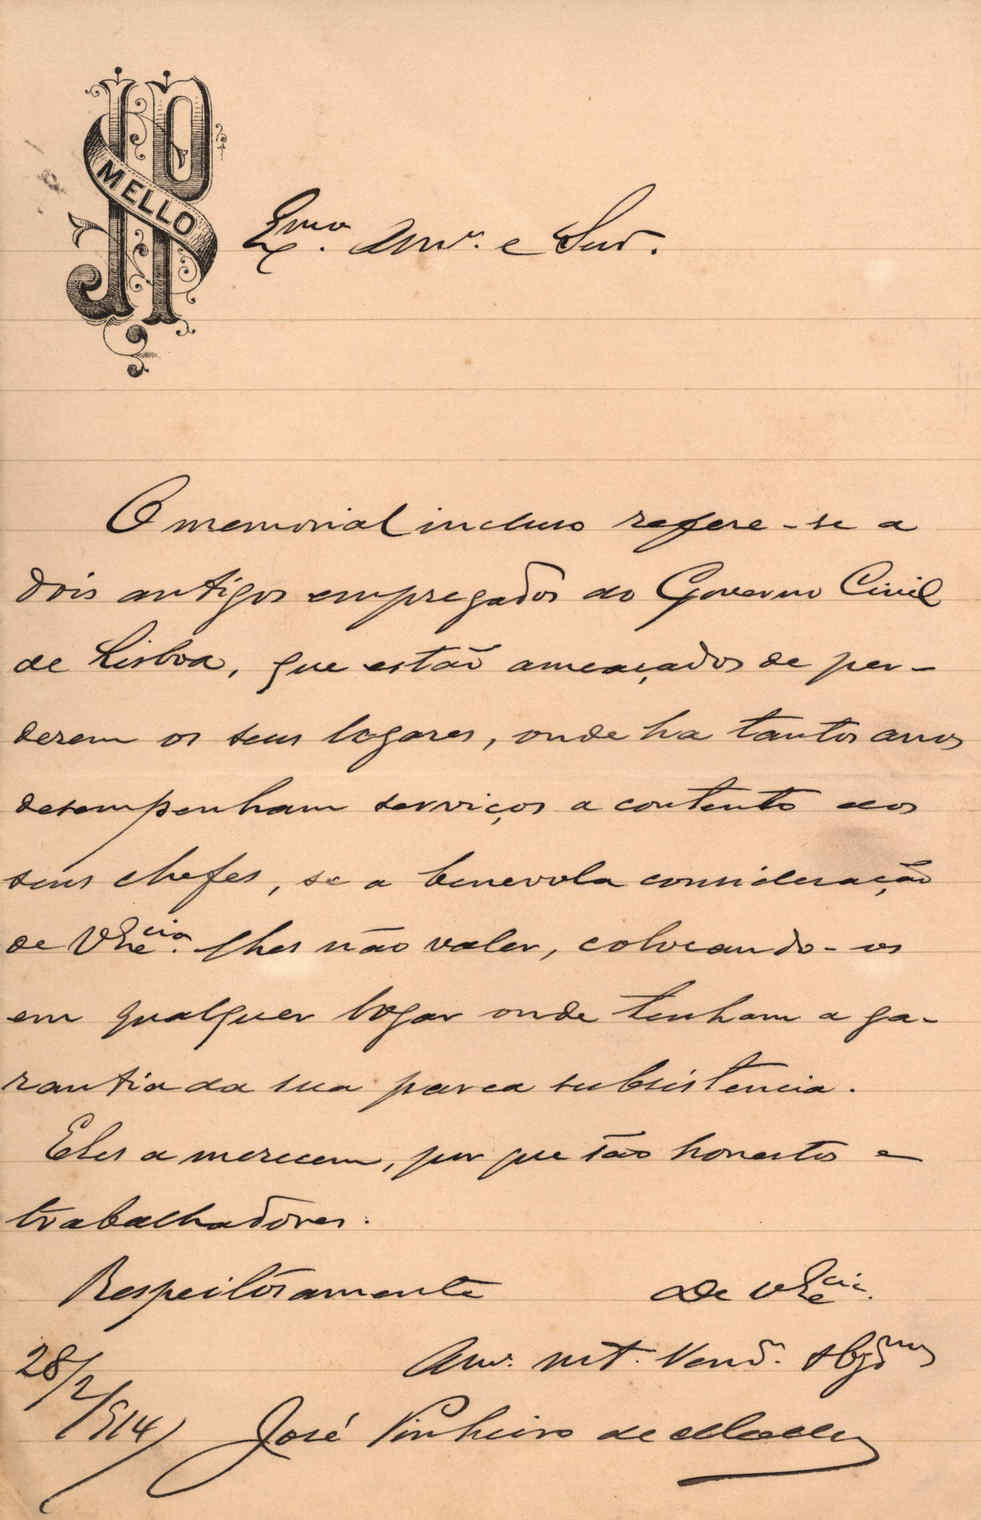 JP
MELLO
Exmo. Amo. e Snr.
O memorial incluso refere-se a
dois antigos empregados do Governo Civil
de Lisboa, que estão ameaçados de per-
derem os seus logares, onde ha tantos anos
desempenham serviços a contento dos
seus chefes, se a benevola consideração
de VExcia. lhes não valer, colocando-os
em qualquer logar onde tenham a ga-
rantia da sua parca subsistencia.
Eles a merecem, por que são honestos e
trabalhadores.
Respeitosamente De VExcia.
Amo. mt. Venor. obgdmo
28/2/914
José Pinheiro de Mello